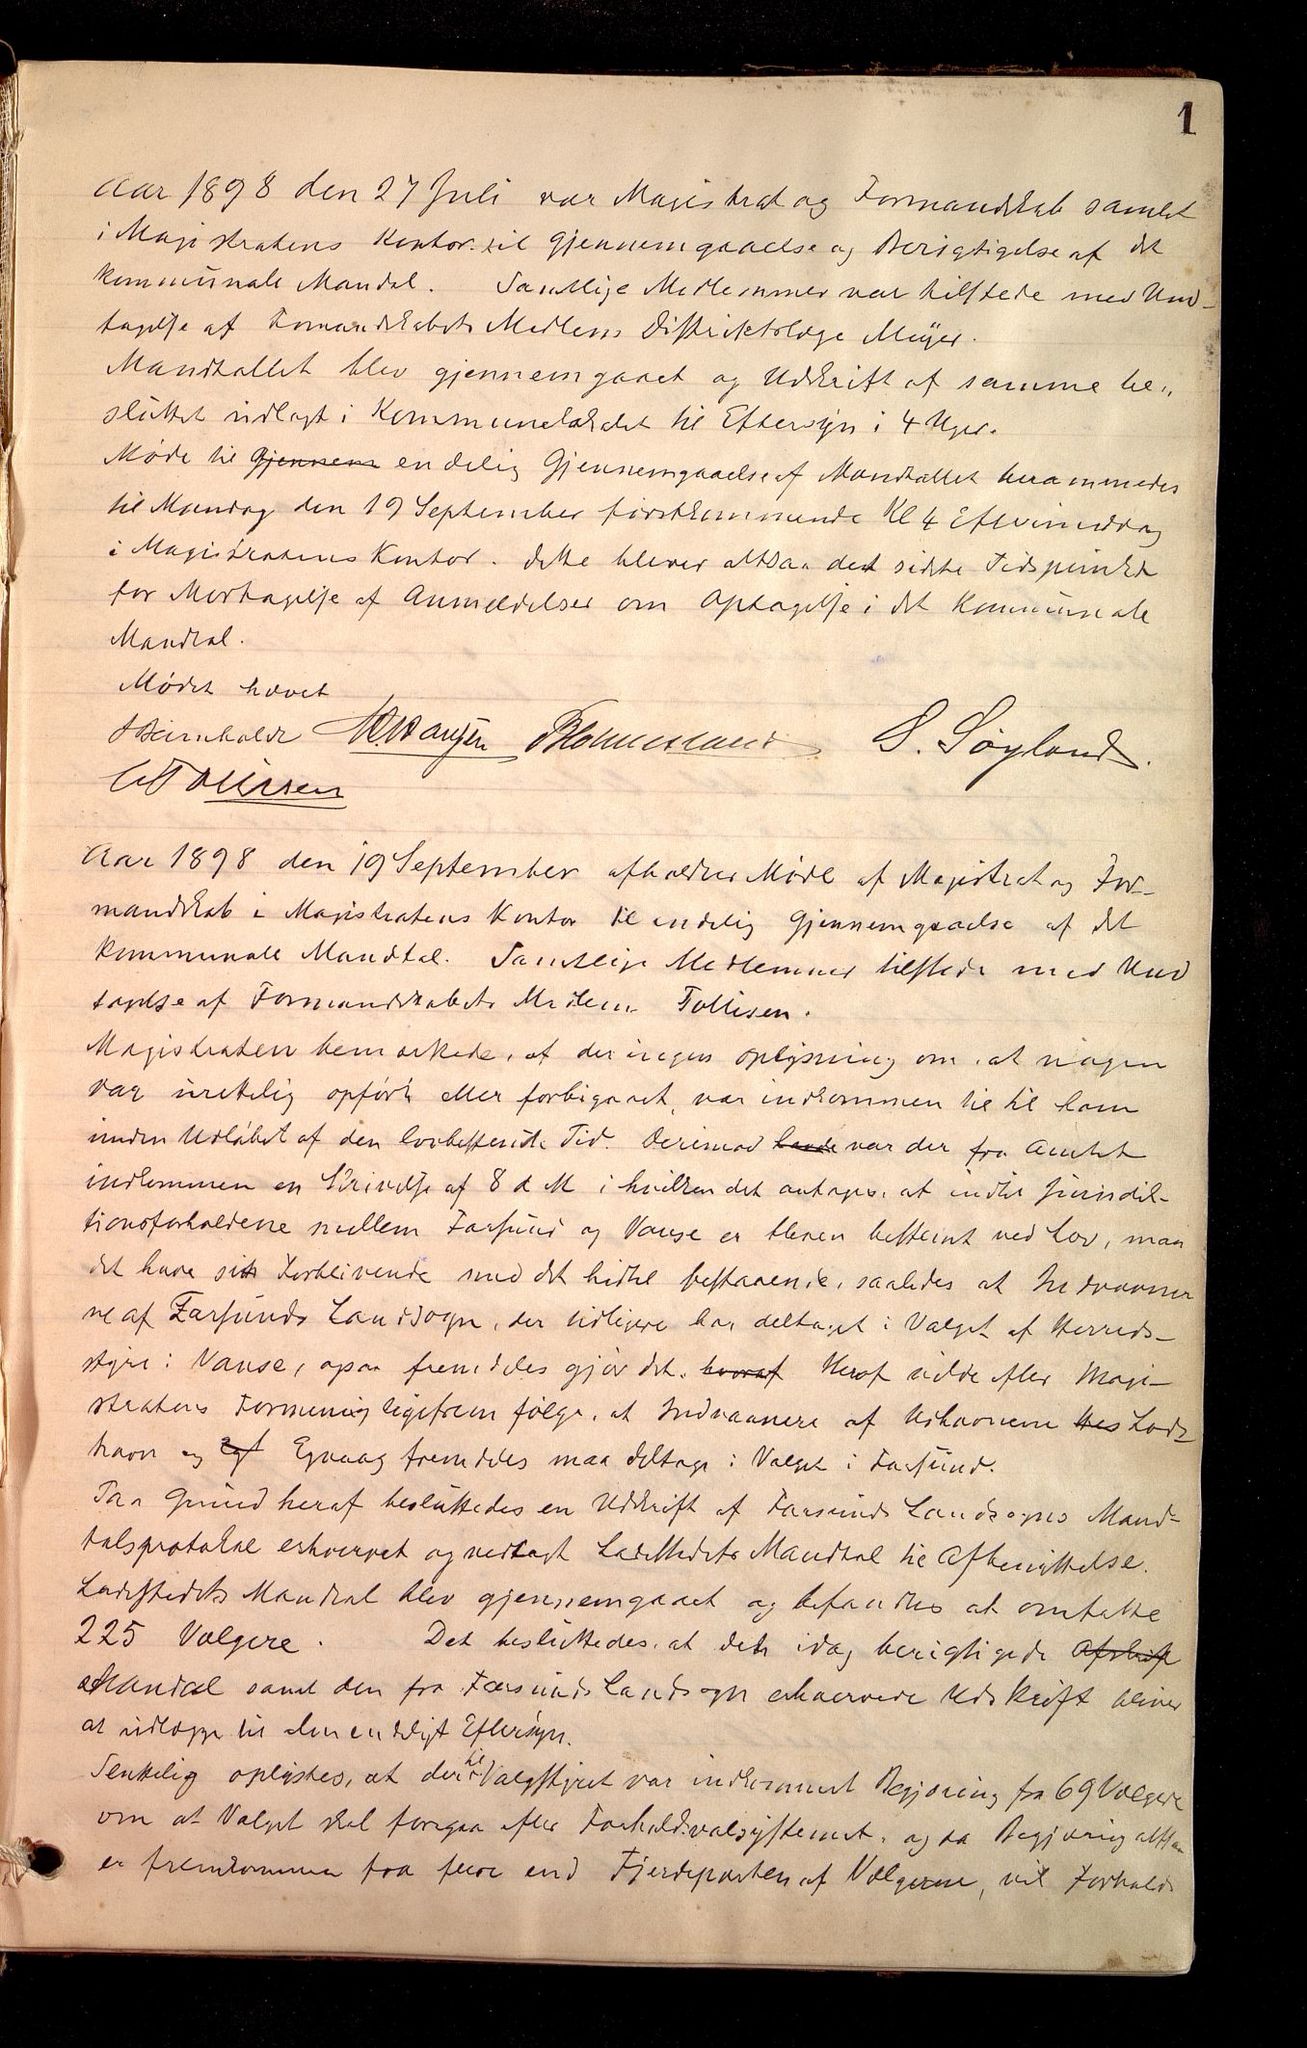 1
Aar 1898 den 27 Juli var Magistrat og Formandskab samlet
i Magistratens Kontor til Gjennemgaaelse og Berigtigelse af det
kommunale Mandal. Samtlige Medlemmer var tilstede med Und-
tagelse af Formandskabets Medlem Distriktslæge Meyer.
Mandtallet blev gjennemgaaet og Udskrift af samme be-
sluttet udlagt i Kommunelokalet til Eftersyn i 4 Uger.
Møde til Gjennem endelig Gjennemgaaelse af Mandtallet berammedes
til Mandag den 19 September førstkommende Kl 4 Eftermiddag
i Magistratens Kontor. Dette bliver altsaa det sidste Tidspunkt
for Modtagelse af Anmeldelser om Optagelse i det Kommunale
Mandtal.
Mødet hævet
S. Søyland.
Aar 1898 den 19 September afholdtes Møde af Magistrat og For-
mandskab i Magistratens Kontor til endelig Gjennemgaaelse af det
kommunale Mandtal. Samtlige Medlemmer tilstede med Und
tagelse af Formandskabets Medlem Tollisen.
Magistraten bemærkede, at der ingen Oplysning om, at nogen
var urettelig opført eller forbigaaet, var indkommen til til ham
inden Udløbet af den lovbestemte Tid. Derimod havde var der fra Amtet
indkommen en Skrivelse af 8 d M i hvilken det antages, at indtil Jurisdik-
tionsforholdene mellem Farsund og Vanse er bleven bestemt ved Lov, maa
det have sit Forblivende med det hidtil bestaaende, saaledes at Indvaaner
ne af Farsunds Landsogn, der tidligere har deltaget i Valget af Herreds-
styre i Vanse, ogsaa fremdeles gjør det. hvoraf Heraf vilde efter Magi-
stratens Formening ligefrem følge, at Indvaanere af Udhavnene Lods
havn og Eg Egvaag fremdeles maa deltage i Valget i Farsund.
Paa Grund heraf besluttedes en Udskrift af Farsunds Landsogns Mand-
talsprotokol erhvervet og vedlagt Ladestedets Mandtal til Afbenyttelse.
Ladestedets Mandtal blev gjennemgaaet og befandtes at omfatte
225 Vælgere. Det besluttedes, at det idag berigtigede Afskrift
Mandtal samt den fra Farsunds Landsogn erhvervede Udskrift bliver
at udlægge til almendeligt Eftersyn.
Senkelig oplystes, at der til Valgstyret var indkommet Begjæring fra 69 Vælgere
om at Valget skal foregaa efter Forholdsvalgsystemet, og da Begjæring altsaa
er fremkommen fra flere end Fjerdeparten af Vælgerne, vil Forholds